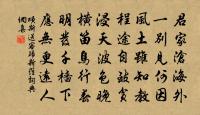 君家滄海外
一別見何因
風土雖知教
程途自致貧
浸天波色晚
橫笛鳥行春
明發千檣下
應無更遠人
項斯送客歸新羅詞典
網集